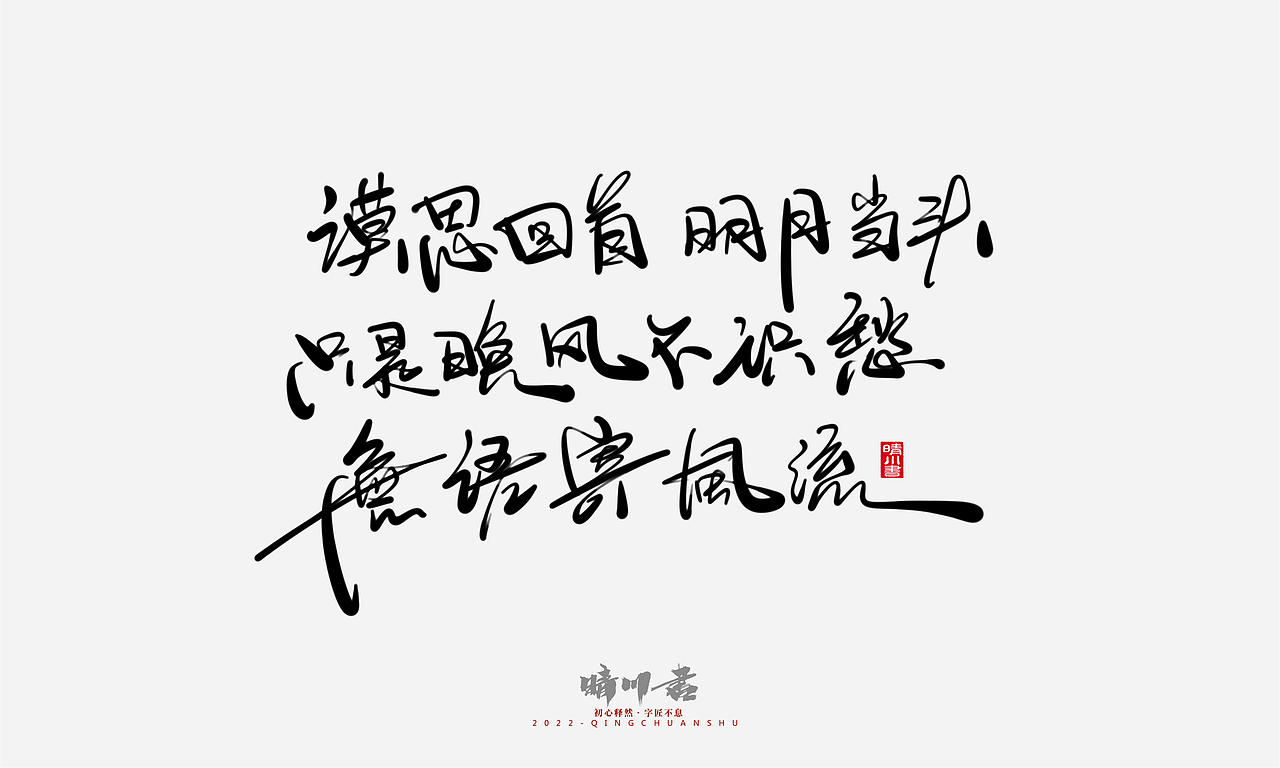 谟思回首 明月当头
只是晚风不识愁
無语寄風流
晴川書
晴川書
初心释然·字匠不息
2022-QINGCHUANSHU